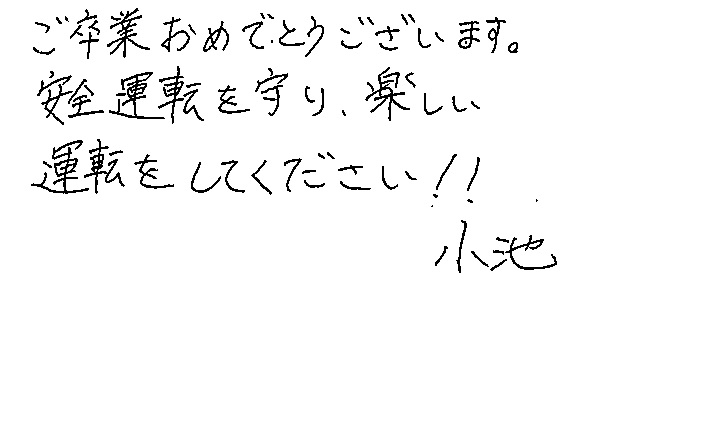 ご卒業おめでとうございます。
安全運転を守り、楽しい
運転をしてください!!
小池